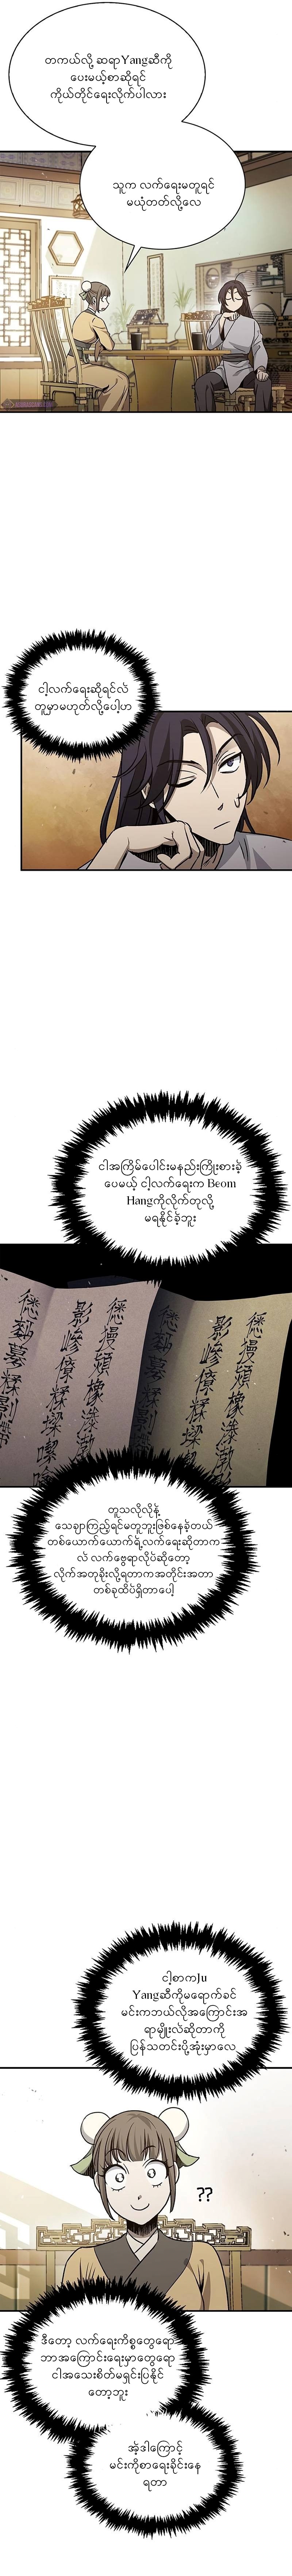 တကယ်လို့ ဆရာYangဆီကို
ပေးမယ့်စာဆိုရင်
ကိုယ်တိုင်ရေးလိုက်ပါလား
သူက လက်ရေးမတူရင်
မယုံတတ်လို့လေ
ငါ့လက်ရေးဆိုရင်လဲ
တူမှာမဟုတ်လို့ပေါ့ဟ
ငါအကြိမ်ပေါင်းမနည်းကြိုးစားခဲ့
ပေမယ့် ငါ့လက်ရေးက Beom
Hangကိုလိုက်တုလို့
မရနိုင်ခဲ့ဘူး
တူသလိုလိုနဲ့
သေချာကြည့်ရင်မတူဘူးဖြစ်နေခဲ့တယ်
တစ်ယောက်ယောက်ရဲ့လက်ရေးဆိုတာက
လဲ လက်ဗွေရာလိုပဲဆိုတော့
လိုက်အတုခိုးလို့ရတာကအတိုင်းအတာ
တစ်ခုထိပဲရှိတာပေါ့
ငါ့စာကJu
Yangဆီကိုမရောက်ခင်
မင်းကဘယ်လိုအကြောင်းအ
ရာမျိုးလဲဆိုတာကို
ပြန်သတင်းပို့အုံးမှာလေ
??
ဒီတော့ လက်ရေးကိစ္စတွေရော
ဘာအကြောင်းရေးမှာတွေရော
ငါအသေးစိတ်မရှင်းပြနိုင်
တော့ဘူး
အဲ့ဒါကြောင့်
မင်းကိုစာရေးခိုင်းနေ
ရတာ